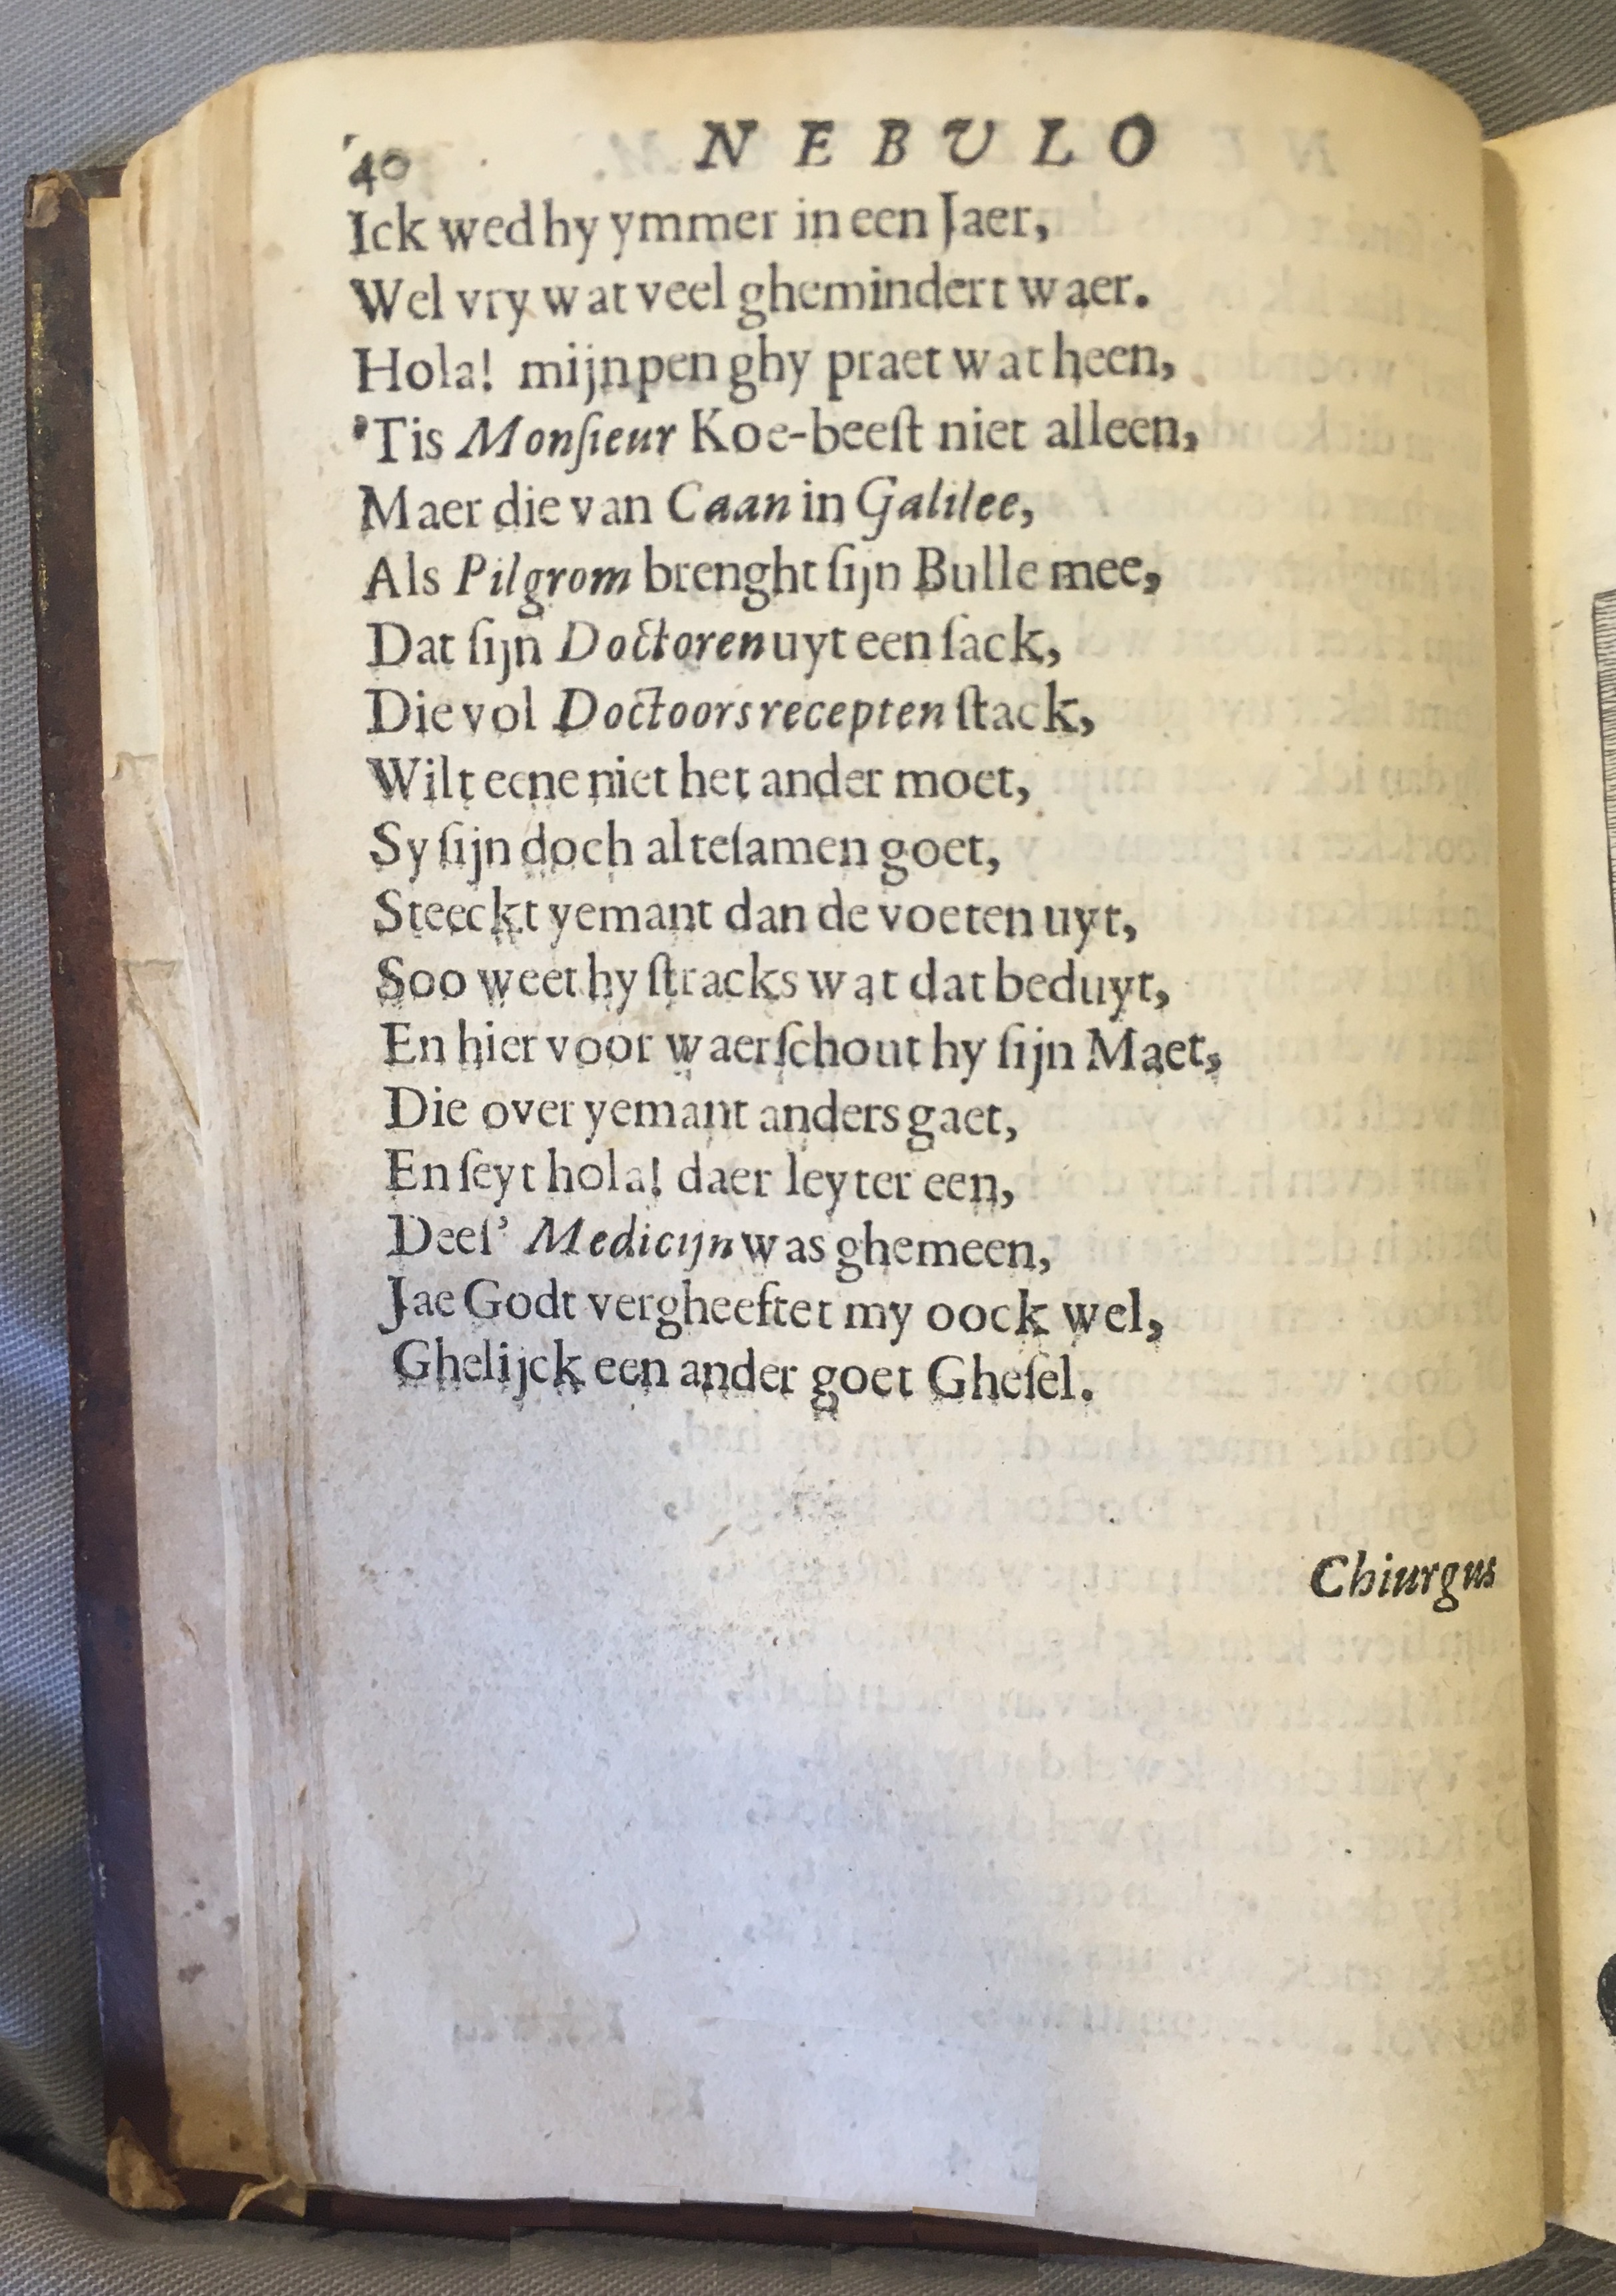 40 NEBULO
Ick wed hy ymmer in een Jaer,
Wel vry wat veel ghemindert waer.
Hola! mijn pen ghy praet wat heen,
'Tis Monſieur Koe-beeſt niet alleen,
Maer die van Caan in Galilee,
Als Pilgrom brenght ſijn Bulle mee,
Dat ſijn Doctoren uyt een ſack,
Die vol Doctoors recepten ſtack,
Wilt eene niet het ander moet,
Sy ſijn doch alteſamen goet,
Steeckt yemant dan de voeten uyt,
Soo weet hy ſtracks wat dat beduyt,
En hier voor waerſchout hy ſijn Maet,
Die over yemant anders gaet,
En ſeyt hola! daer leyter een,
Deeſ' Medicijn was ghemeen,
Jae Godt vergheeftet my oock wel,
Ghelijck een ander goet Gheſel.
Chiurgus